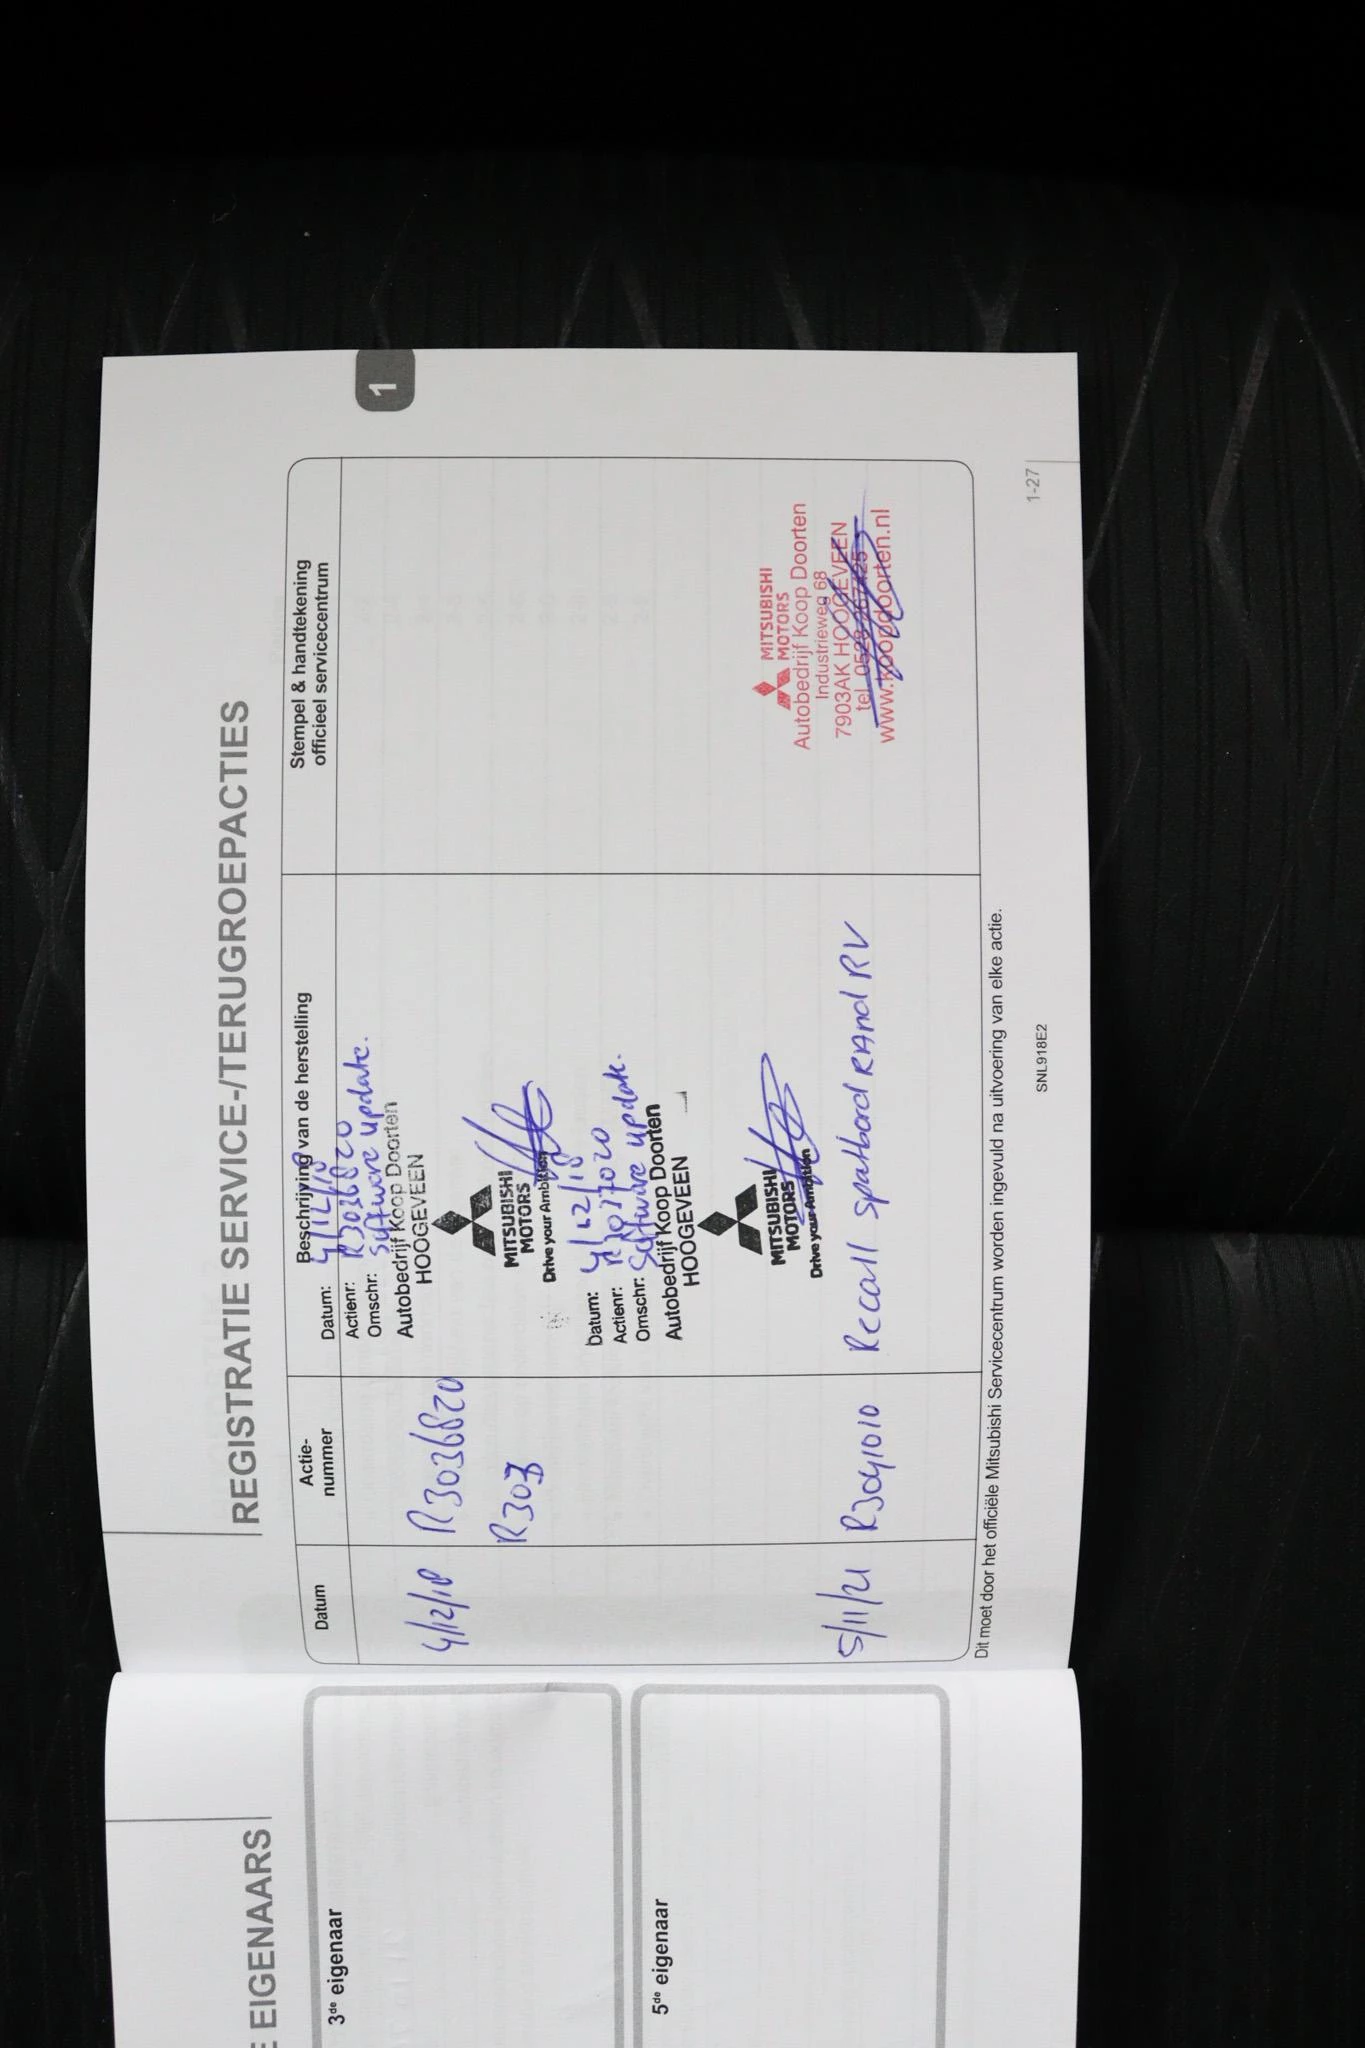 E EIGENAARS
3de eigenaar
5de eigenaar
REGISTRATIE SERVICE-/TERUGROEPACTIES
1
Datum
Actie-
nummer
Beschrijving van de herstelling
Stempel & handtekening
officieel servicecentrum
4/12/18
R3036820
R303
Datum: 4/12/18
Actienr: R3036820
Omschr: Software update.
Autobedrijf Koop Doorten
HOOGEVEEN
MITSUBISHI
MOTORS
Drive your Ambition
Datum: 4/12/18
Actienr:
Omschr: Software update.
Autobedrijf Koop Doorten
HOOGEVEEN
MITSUBISHI
MOTORS
Drive your Ambition
5/11/21
R3041010
Recall spatbord RAnd RV
MITSUBISHI
MOTORS
Autobedrijf Koop Doorten
Industrieweg 68
7903AK HOOGEVEEN
tel. 0528
www.koopdoorten.nl
Dit moet door het officiële Mitsubishi Servicecentrum worden ingevuld na uitvoering van elke actie.
SNL918E2
1-27